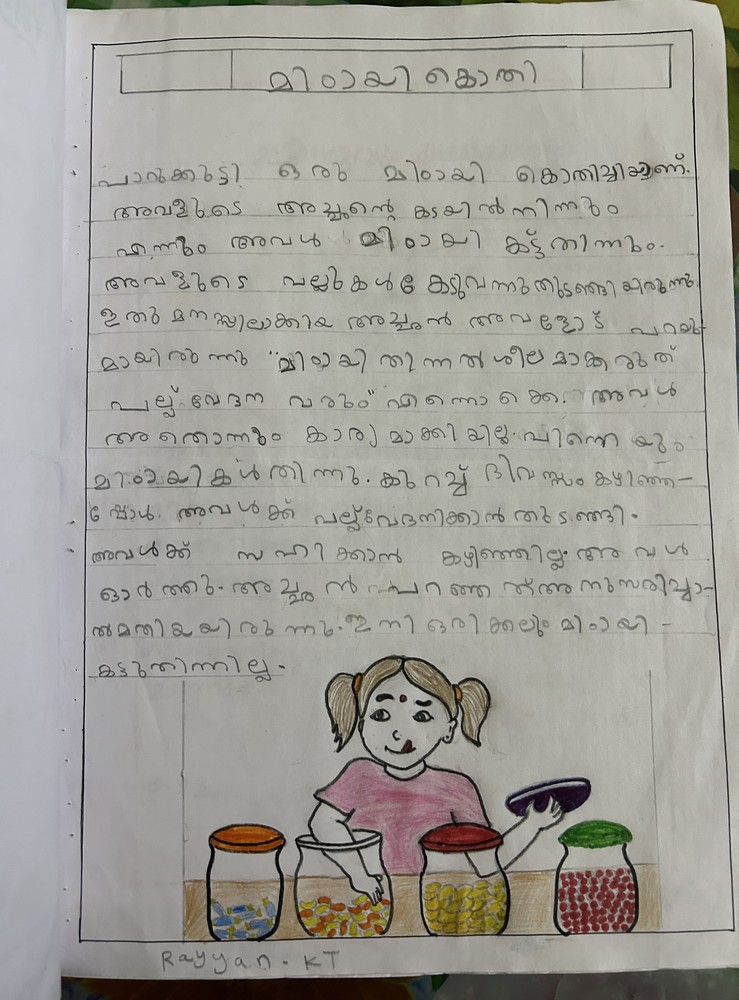 മിഠായി കൊതി
പാറുക്കുട്ടി ഒരു മിഠായി കൊതിച്ചിയാണ്.
അവളുടെ അച്ഛന്റെ കടയിൽ നിന്നും
എന്നും അവൾ മിഠായി കട്ട് തിന്നും.
അവളുടെ പല്ലുകൾ കേടുവന്നു തുടങ്ങിയിരുന്നു
ഇതു മനസ്സിലാക്കിയ അച്ഛൻ അവളോട് പറയു-
മായിരുന്നു "മിഠായി തിന്നൽ ശീലമാക്കരുത്
പല്ല് വേദന വരും" എന്നൊക്കെ. അവൾ
അതൊന്നും കാര്യമാക്കിയില്ല. പിന്നെയും
മിഠായികൾ തിന്നു. കുറച്ച് ദിവസം കഴിഞ്ഞ-
പ്പോൾ അവൾക്ക് പല്ല് വേദനിക്കാൻ തുടങ്ങി.
അവൾക്ക് സഹിക്കാൻ കഴിഞ്ഞില്ല. അവൾ
ഓർത്തു. അച്ഛൻ പറഞ്ഞത് അനുസരിച്ചാ-
ൽ മതിയയിരുന്നു. ഇനി ഒരിക്കലും മിഠായി -
കട്ടുതിന്നില്ല.
Rayyan - KT